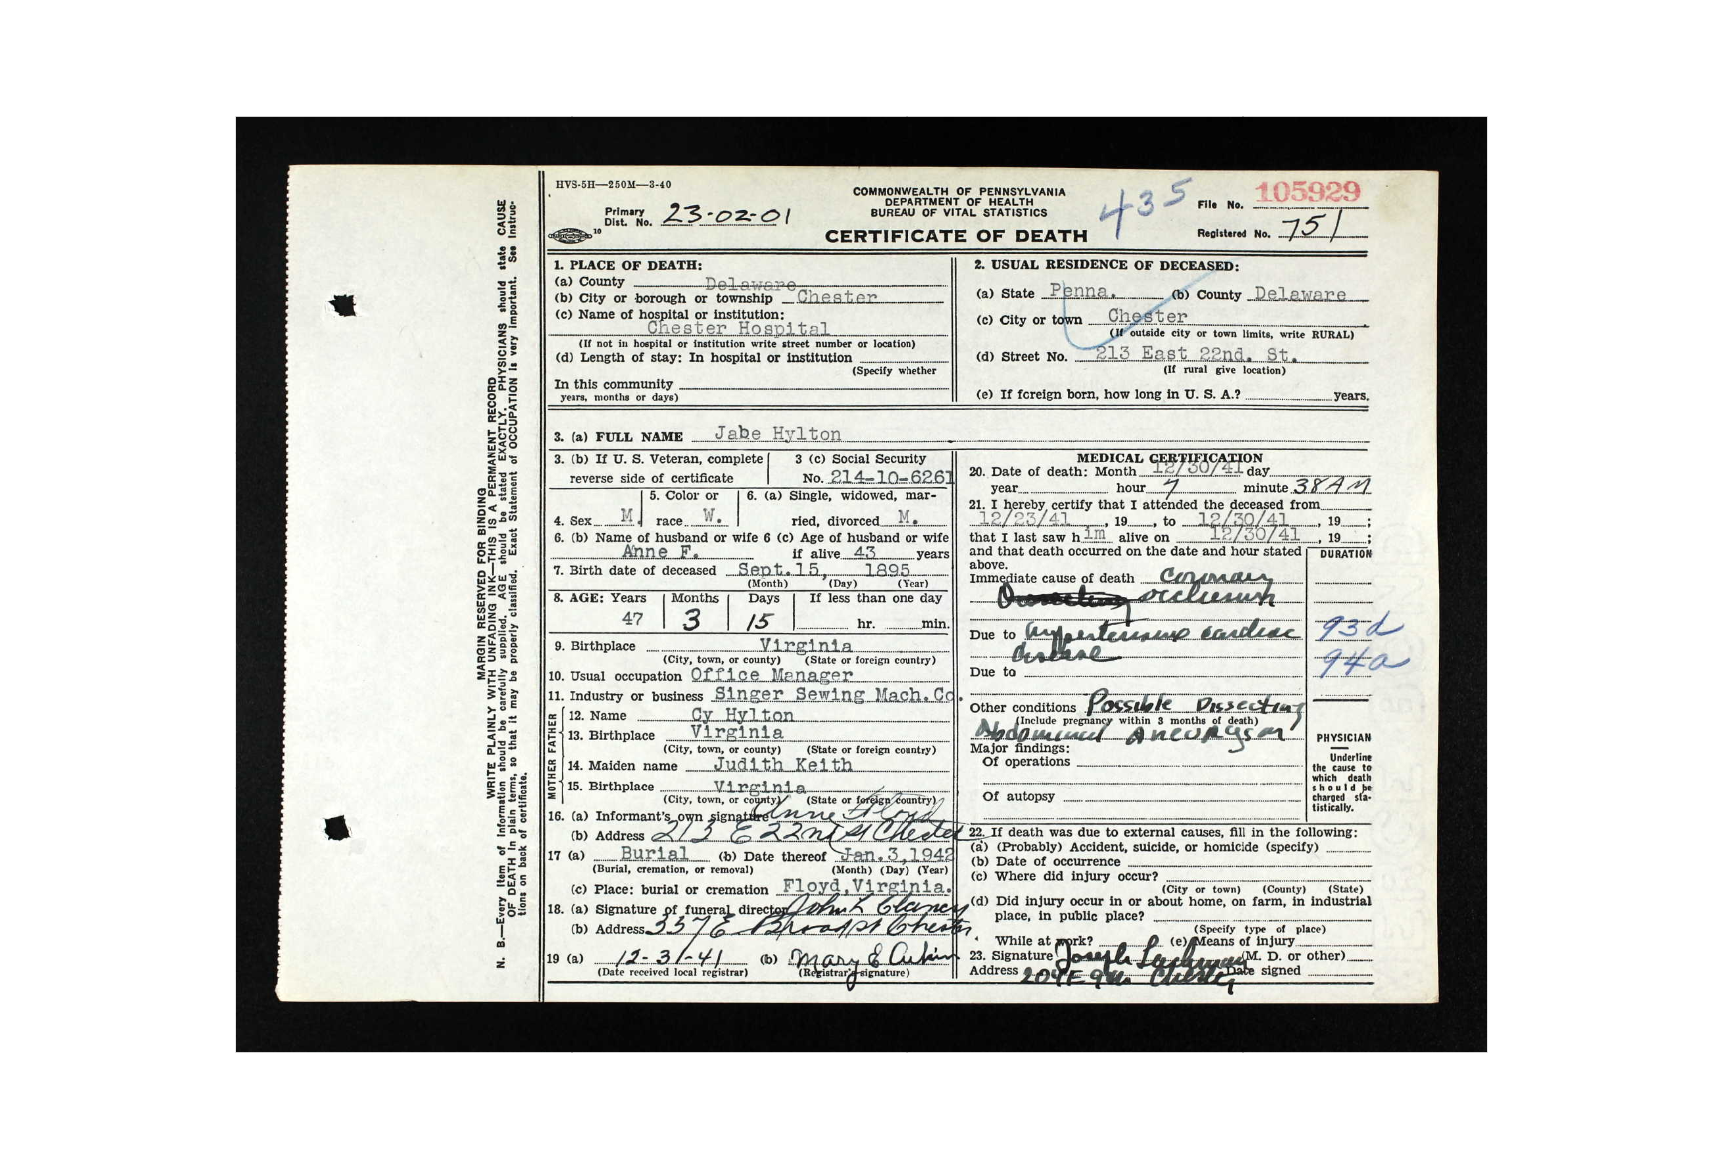 HVS-5H—250M—3-40
Primary Dist. No. 23-02-01
10
COMMONWEALTH OF PENNSYLVANIA
DEPARTMENT OF HEALTH
BUREAU OF VITAL STATISTICS
CERTIFICATE OF DEATH
435
File No. 105929
Registered No. 751
MARGIN RESERVED FOR BINDING
WRITE PLAINLY WITH UNFADING INK—THIS IS A PERMANENT RECORD
N. B.—Every item of information should be carefully supplied. AGE should be stated EXACTLY. PHYSICIANS should state CAUSE
OF DEATH in plain terms, so that it may be properly classified. Exact Statement of OCCUPATION is very important. See Instruc-
tions on back of certificate.
1. PLACE OF DEATH:
(a) County Delaware
(b) City or borough or township Chester
(c) Name of hospital or institution:
Chester Hospital
(If not in hospital or institution write street number or location)
(d) Length of stay: In hospital or institution
(Specify whether
In this community
years, months or days)
2. USUAL RESIDENCE OF DECEASED:
(a) State Penna. (b) County Delaware
(c) City or town Chester
(If outside city or town limits, write RURAL)
(d) Street No. 213 East 22nd. St.
(If rural give location)
(e) If foreign born, how long in U. S. A.? years.
3. (a) FULL NAME Jabe Hylton
3. (b) If U. S. Veteran, complete
reverse side of certificate
3 (c) Social Security
No. 214-10-6261
4. Sex M.
5. Color or
race W.
6. (a) Single, widowed, mar-
ried, divorced M.
6. (b) Name of husband or wife
Anne F.
6 (c) Age of husband or wife
if alive 43 years
7. Birth date of deceased Sept. 15, 1895
(Month) (Day) (Year)
8. AGE: Years Months Days If less than one day
47 3 15 hr. min.
9. Birthplace Virginia
(City, town, or county) (State or foreign country)
10. Usual occupation Office Manager
11. Industry or business Singer Sewing Mach. Co.
FATHER
12. Name Cy Hylton
13. Birthplace Virginia
(City, town, or county) (State or foreign country)
MOTHER
14. Maiden name Judith Keith
15. Birthplace Virginia
(City, town, or county) (State or foreign country)
16. (a) Informant's own signature Anne
(b) Address 213 E 22nd St Chester
17 (a) Burial (b) Date thereof Jan. 3, 1942
(Burial, cremation, or removal) (Month) (Day) (Year)
(c) Place: burial or cremation Floyd, Virginia.
18. (a) Signature of funeral director John L Clancy
(b) Address 337 E Broad St Chester
19 (a) 12-31-41 (b) Mary E
(Date received local registrar) (Registrar's signature)
MEDICAL CERTIFICATION
20. Date of death: Month 12/30/41 day
year hour 7 minute 38 AM
21. I hereby certify that I attended the deceased from
12/23/41, 19 , to 12/30/41, 19 ;
that I last saw him alive on 12/30/41, 19 ;
and that death occurred on the date and hour stated
above.
DURATION
Immediate cause of death Coronary
occlusion
Due to Hypertensive cardiac
disease
93d
94a
Due to
Other conditions Possible Dissecting
(Include pregnancy within 3 months of death)
Abdominal Aneurysm
Major findings:
Of operations
Of autopsy
PHYSICIAN
Underline
the cause to
which death
should be
charged sta-
tistically.
22. If death was due to external causes, fill in the following:
(a) (Probably) Accident, suicide, or homicide (specify)
(b) Date of occurrence
(c) Where did injury occur?
(City or town) (County) (State)
(d) Did injury occur in or about home, on farm, in industrial
place, in public place?
(Specify type of place)
While at work? (e) Means of injury
23. Signature Joseph (M. D. or other)
Address 204 E 9th Chester Date signed